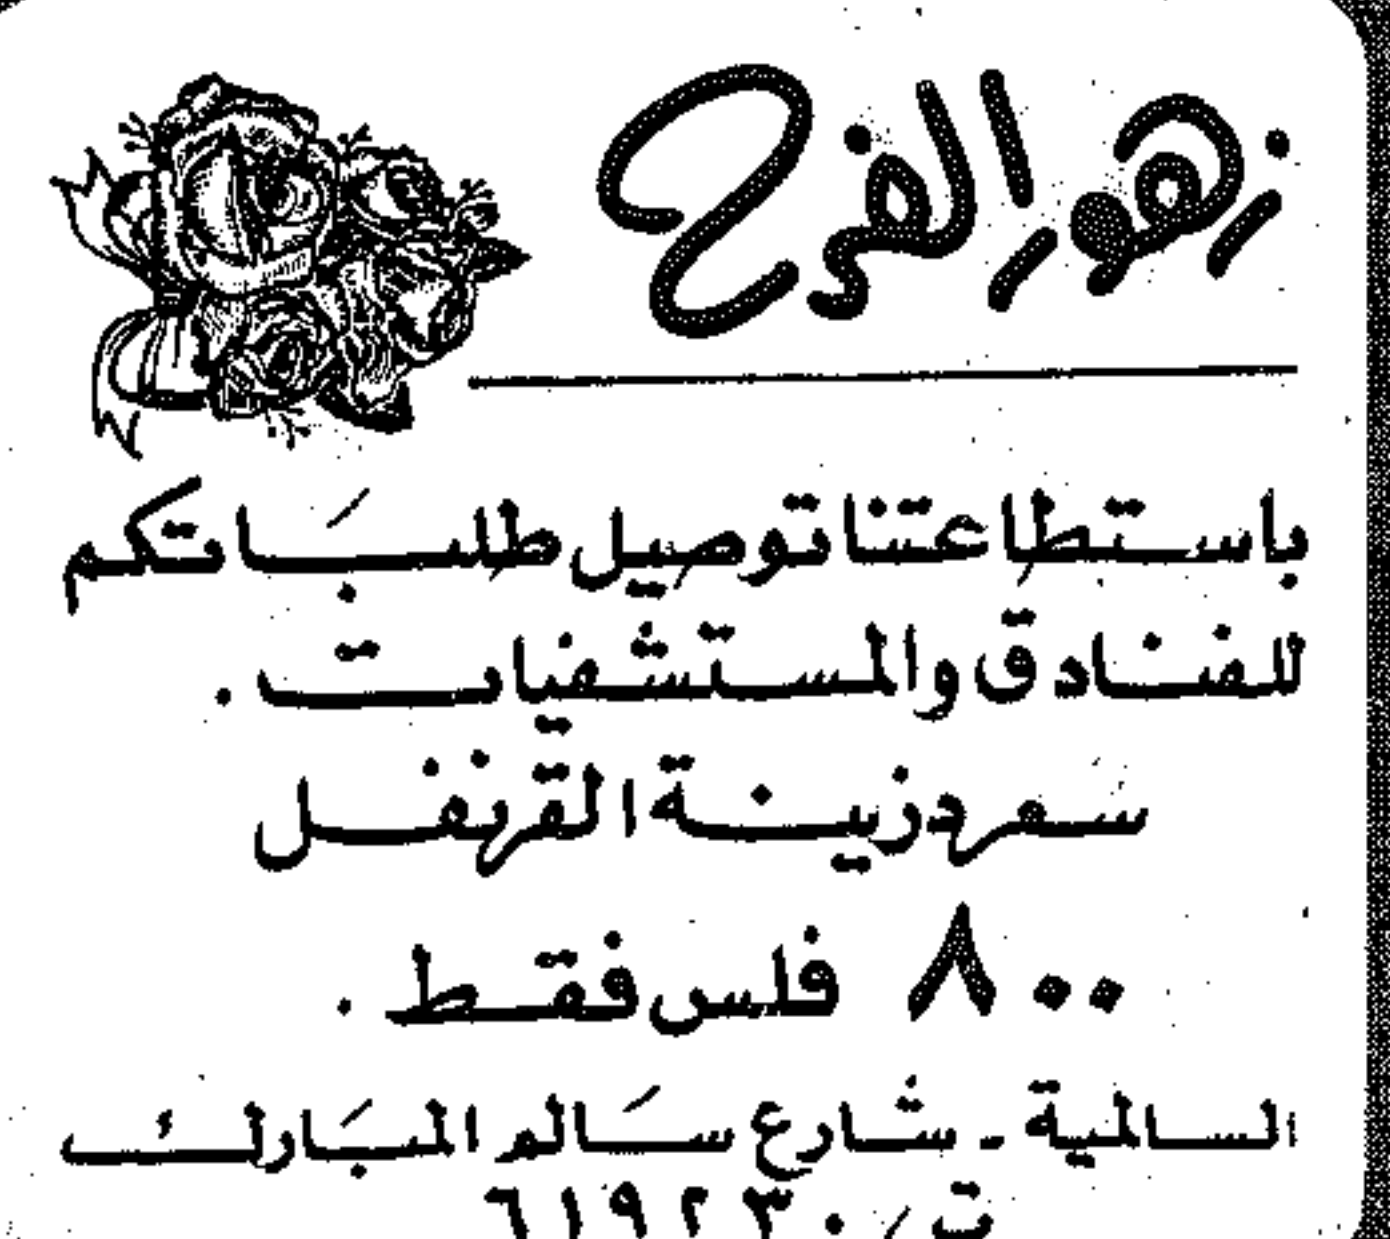 زهور الفرح
باستطاعتنا توصيل طلباتكم
للفنادق والمستشفيات .
سعر دزينة القرنفل
٨٠٠ فلس فقط .
السالمية - شارع سالم المبارك
ت / ٦١٩٢٣٠